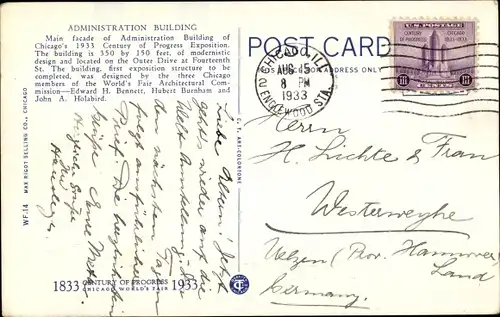 ADMINISTRATION BUILDING
Main facade of Administration Building of
Chicago's 1933 Century of Progress Exposition.
The building is 550 by 150 feet, of modernistic
design and located on the Outer Drive at Fourteenth
St. The building, first exposition structure to be
completed, was designed by the three Chicago
members of the World's Fair Architectural Com-
mission—Edward H. Bennett, Hubert Burnham and
John A. Holabird.
WF.14
MAX RIGOT SELLING CO., CHICAGO
Liebe Eltern! Jetzt
geht's wieder auf die
In
den nächsten Tagen
folgt ausführlicher
Brief. Die herzlichsten
Grüsse Eure
Herzliche Grüsse
1833 CENTURY OF PROGRESS 1933
CHICAGO WORLD'S FAIR
C.T. ART-COLORTONE
POST CARD
CHICAGO, ILL.
AUG 15
8 PM
1933
ENGLEWOOD STA.
U.S. POSTAGE
CENTURY OF PROGRESS
1833-1933
CHICAGO
3 CENTS 3
Herrn
H. Lüchte & Frau
Westerweyhe
Uelzen (Prov. Hannover)
Land
Germany.